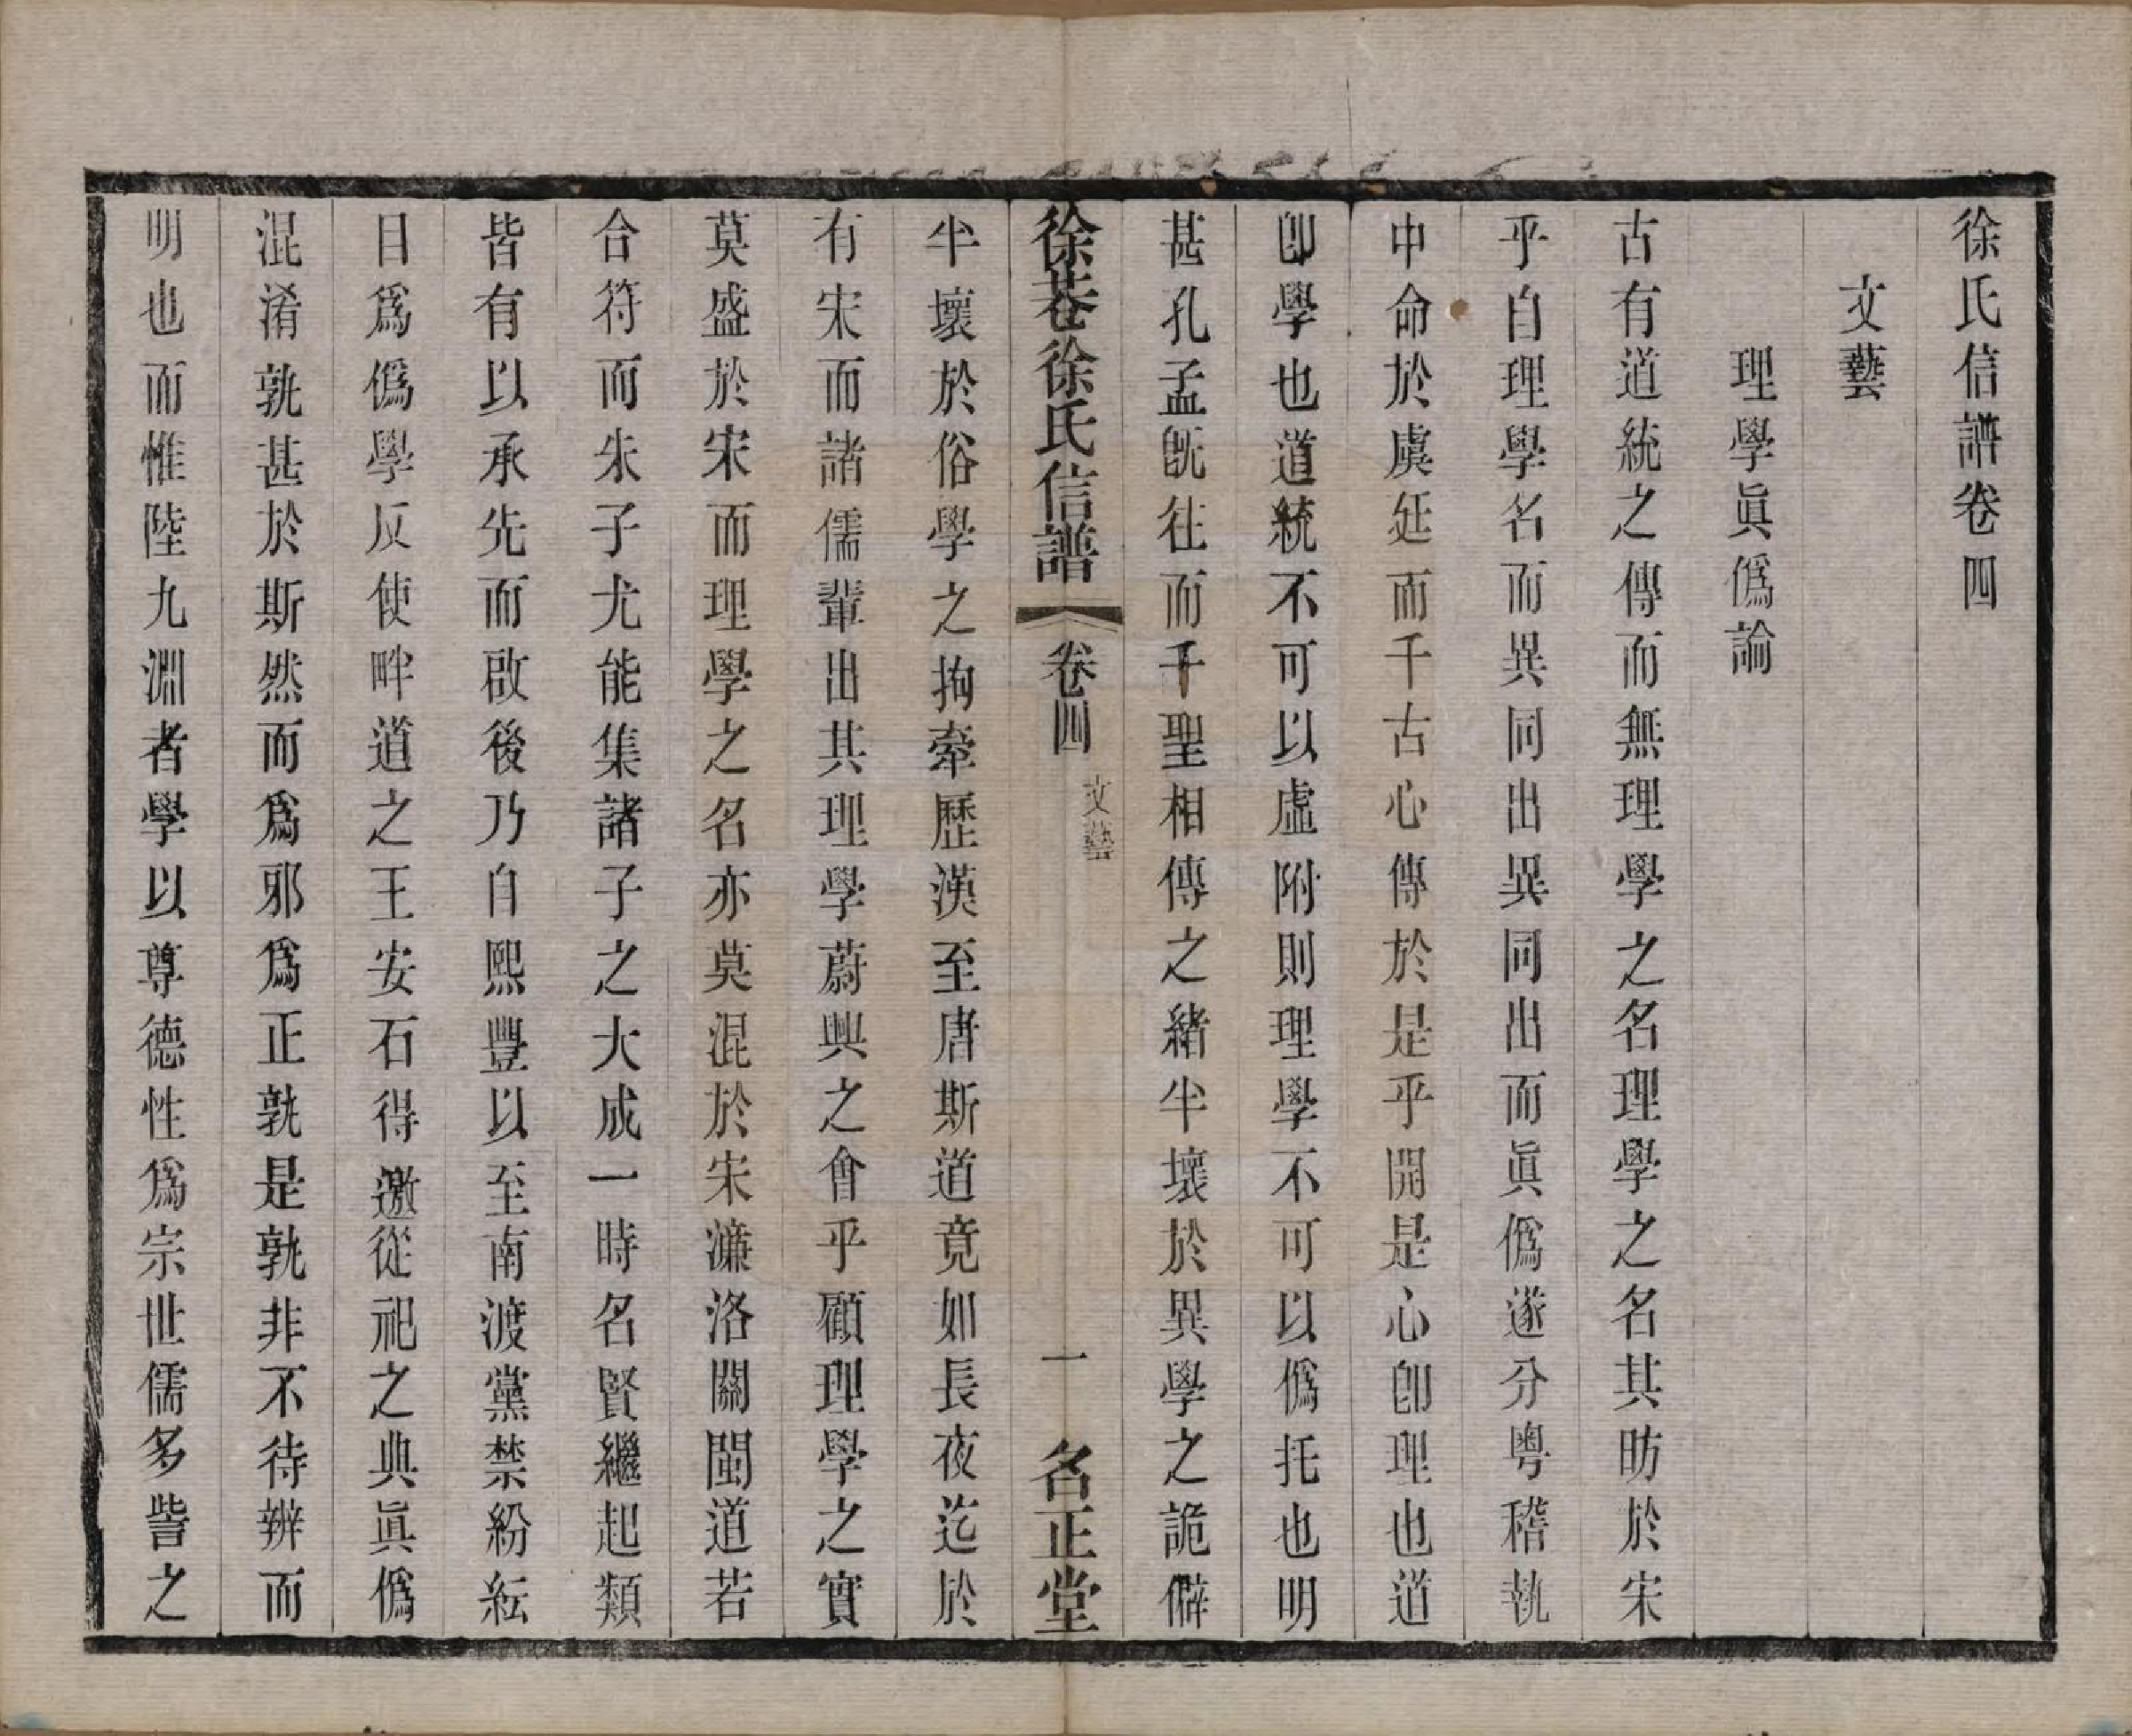 徐氏信譜卷四
文藝
理學眞僞論
古有道統之傳而無理學之名理學之名其昉於宋
乎自理學名而異同出異同出而眞僞遂分粤稽執
中命於虞延而千古心傳於是乎開是心卽理也道
卽學也道統不可以虛附則理學不可以僞托也明
甚孔孟旣往而千聖相傳之緒半壞於異學之詭僻
徐巷徐氏信譜
卷四
文藝
一
名正堂
半壞於俗學之拘牽歷漢至唐斯道竟如長夜迄於
有宋而諸儒輩出其理學蔚興之會乎顧理學之實
莫盛於宋而理學之名亦莫混於宋濂洛關閩道若
合符而朱子尤能集諸子之大成一時名賢繼起類
皆有以承先而啟後乃自熙豐以至南渡黨禁紛紜
目爲僞學反使畔道之王安石得邀從祀之典眞僞
混淆孰甚於斯然而爲邪爲正孰是孰非不待辨而
明也而惟陸九淵者學以尊德性爲宗世儒多訾之